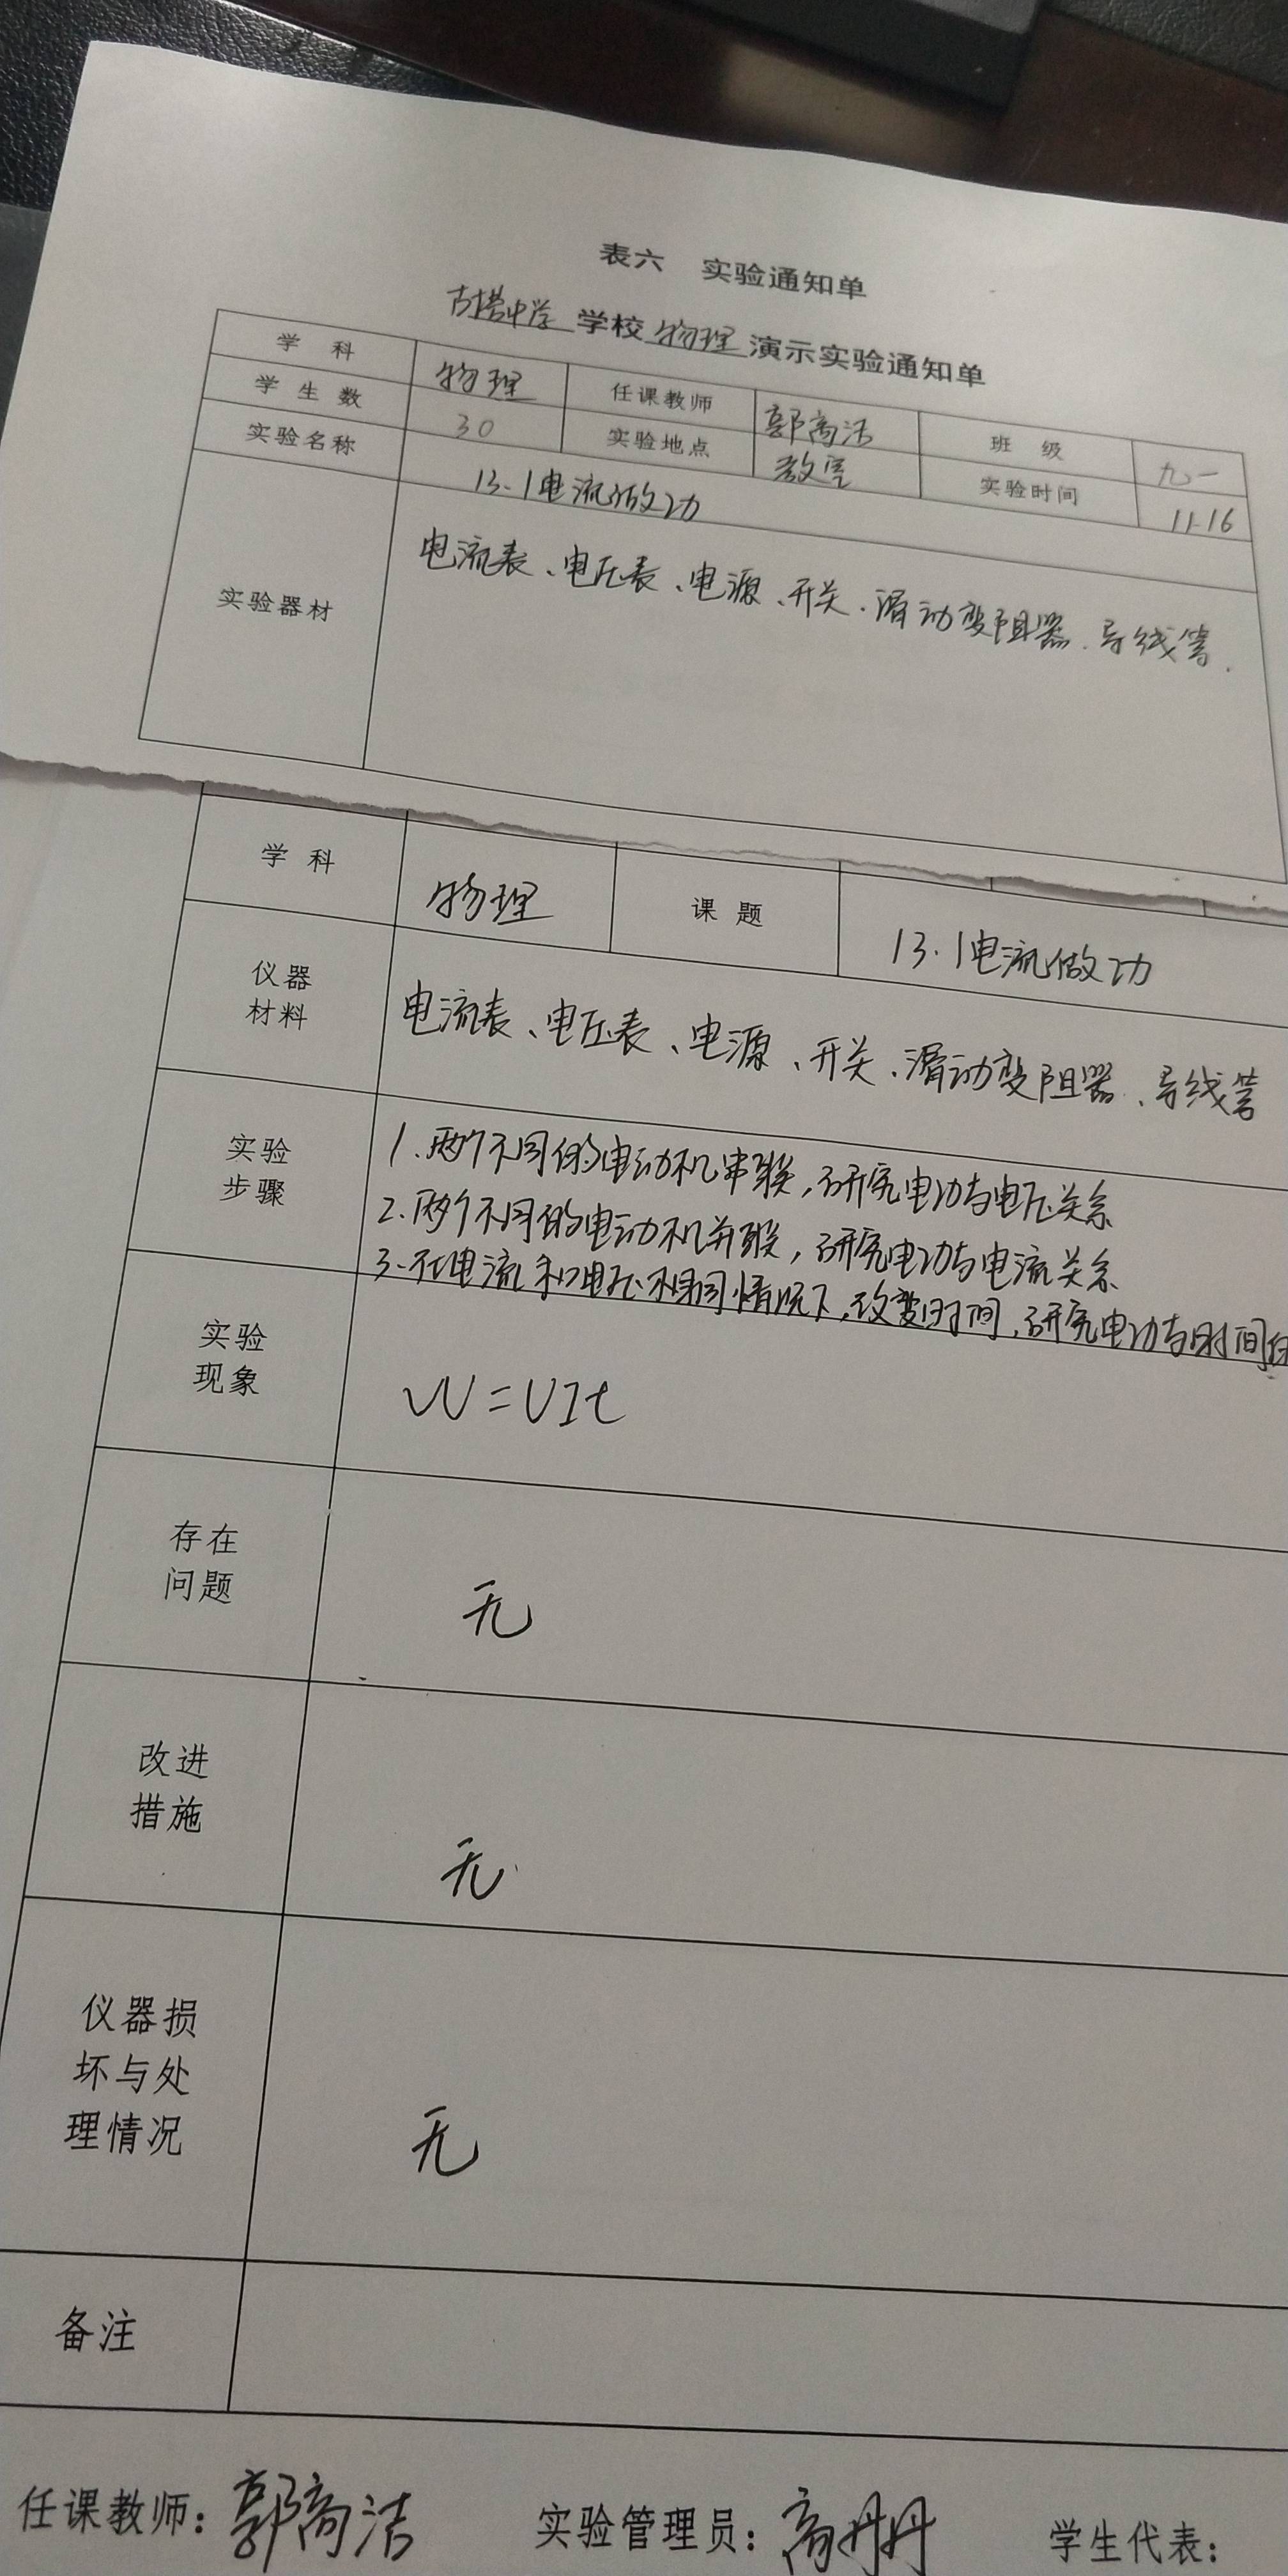 表六 实验通知单
古塔中学 学校 物理 演示实验通知单
学 科 物理 任课教师 郭高洁 班 级 九一
学 生 数 30 实验地点 教室 实验时间 11.16
实验名称 13.1电流做功
实验器材 电流表、电压表、电源、开关、滑动变阻器、导线等.
学 科 物理 课 题 13.1电流做功
仪器
材料
电流表、电压表、电源、开关、滑动变阻器、导线等
实验
步骤
1.两个不同的电动机串联,研究电功与电压关系
2.两个不同的电动机并联,研究电功与电流关系
3.在电流和电压不相同情况下,改变时间,研究电功与时间
实验
现象
W=UIt
存在
问题
无
改进
措施
无
仪器损
坏与处
理情况
无
备注
任课教师: 郭高洁 实验管理员: 高丹丹 学生代表: